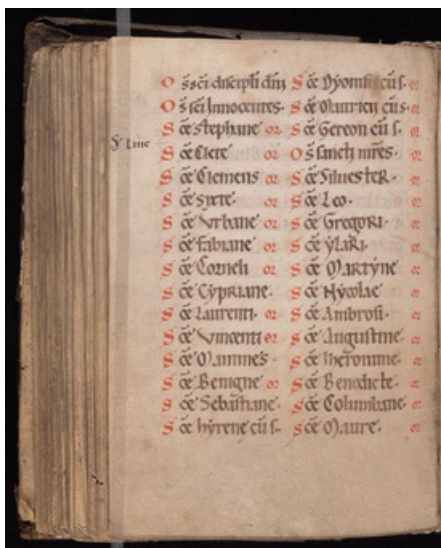 O s̄ s̄ci discipli dn̄i
O s̄ s̄ci Innocentes.
S c̄e Stephane or
Sc̄ Line
S c̄e Clete or
S c̄e Clemens or
S c̄e Syxte or
S c̄e Vrbane or
S c̄e Fabiane or
S c̄e Corneli or
S c̄e Cypriane.
S c̄e Laurenti or
S c̄e Vincenti or
S c̄e Mammes
S c̄e Benigne or
S c̄e Sebastiane.
S c̄e hyrenee cū s.
S c̄e Dyonisi cū s. or
S c̄e Maurici cū s. or
S c̄e Gereon cū s. or
O s̄ sancti mr̄es. or
S c̄e Siluester. or
S c̄e Leo. or
S c̄e Gregori. or
S c̄e ylari. or
S c̄e Martyne or
S c̄e Nycolae or
S c̄e Ambrosi. or
S c̄e Augustine or
S c̄e iheronime. or
S c̄e Benedicte. or
S c̄e Columbane. or
S c̄e Maure. or